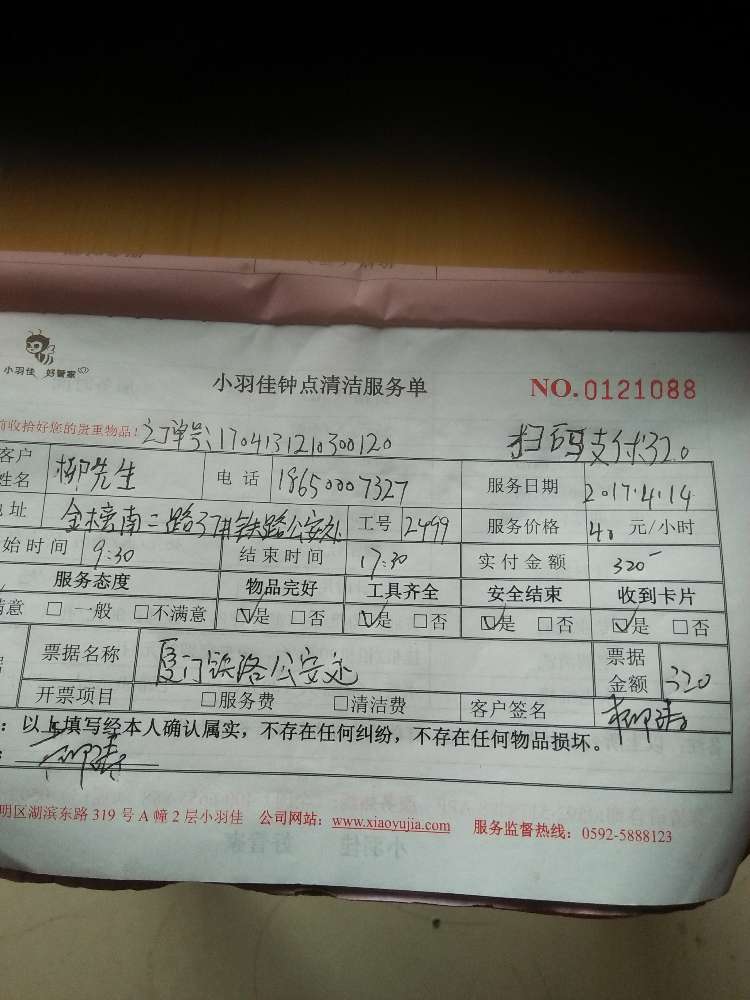 小羽佳 好管家
小羽佳钟点清洁服务单 NO.0121088
前收拾好您的贵重物品! 订单号:1704131210300120 扫码支付320
客户姓名 柳先生 电话 18650007327 服务日期 2017.4.14
址 金榜南二路37#铁路公安处 工号 2499 服务价格 40 元/小时
始时间 9:30 结束时间 17:30 实付金额 320
服务态度 物品完好 工具齐全 安全结束 收到卡片
满意 □一般 □不满意 ☑是 □否 ☑是 □否 ☑是 □否 ☑是 □否
票据名称 厦门铁路公安处 票据金额 320
开票项目 □服务费 □清洁费 客户签名
:以上填写经本人确认属实,不存在任何纠纷,不存在任何物品损坏。
明区湖滨东路 319 号 A 幢 2 层小羽佳 公司网站:www.xiaoyujia.com 服务监督热线:0592-5888123